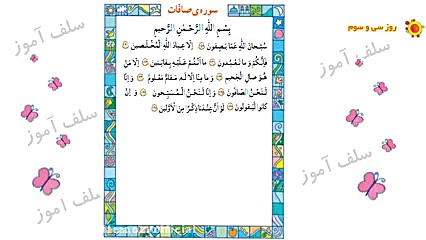 سوره‌ی صافات
روز سی و سوم
بِسْمِ اللّٰهِ الرَّحْمٰنِ الرَّحيمِ
سُبْحانَ اللّٰهِ عَمّا يَصِفُونَ إِلّا عِبادَ اللّٰهِ الْمُخْلَصينَ
فَإِنَّكُمْ وَ ما تَعْبُدُونَ ما أَنْتُمْ عَلَيْهِ بِفاتِنينَ إِلّا مَنْ
هُوَ صالِ الْجَحيمِ وَ ما مِنّا إِلّا لَهُ مَقامٌ مَعْلُومٌ وَ إِنّا
لَنَحْنُ الصّافُّونَ وَ إِنّا لَنَحْنُ الْمُسَبِّحُونَ وَ إِنْ
كانُوا لَيَقُولُونَ لَوْ أَنَّ عِنْدَنا ذِكْرًا مِنَ الْأَوَّلينَ
سلف آموز
سلف آموز
سلف آموز
سلف آموز